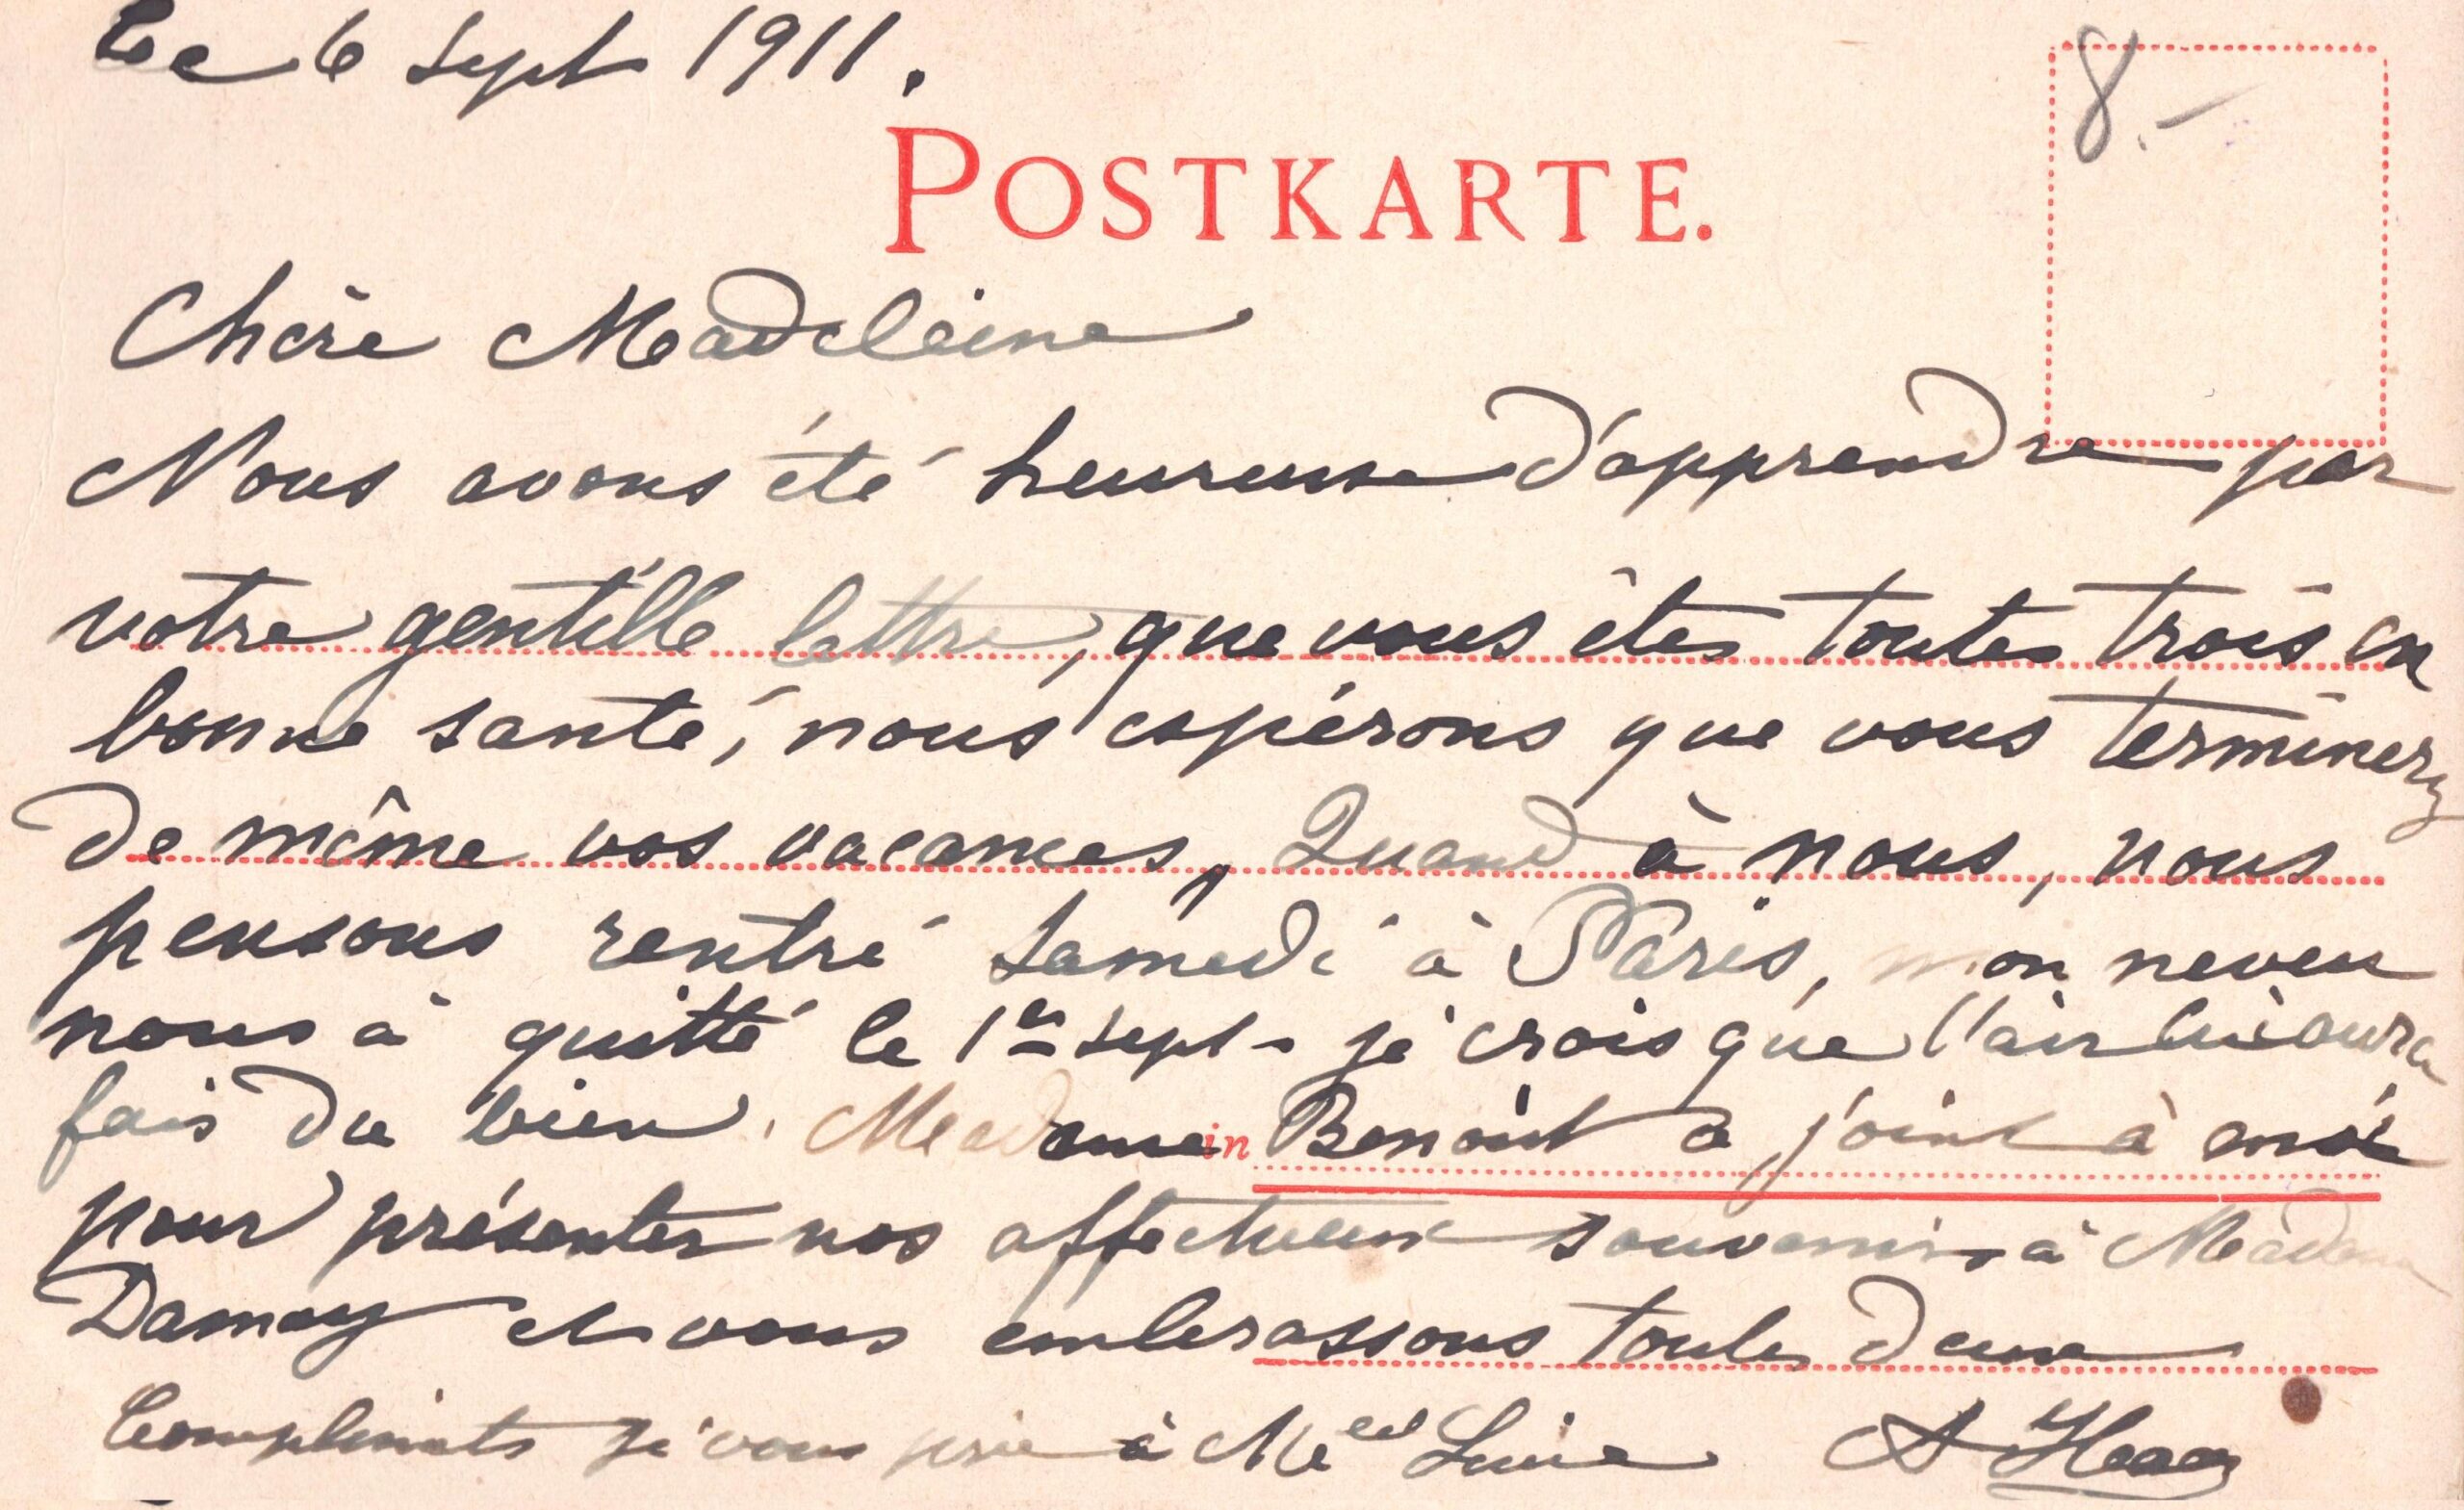 Le 6 Sept 1911.
8.-
POSTKARTE.
Chère Madeleine
Nous avons été heureuse d'apprendre par
votre gentille lettre, que vous êtes toutes trois en
bonne santé, nous espérons que vous terminerz
de même vos vacances, Quand à nous, nous
pensons rentré Samedi à Paris, mon neveu
nous à quitté le 1er Sept - je crois que l'air lui aura
fais du bien. Madame in Benoit a joint à moi
pour présenter nos affectueux souvenirs à Madame
Damoy et vous embrassons toutes deux
Compliments je vous prie à Melle A